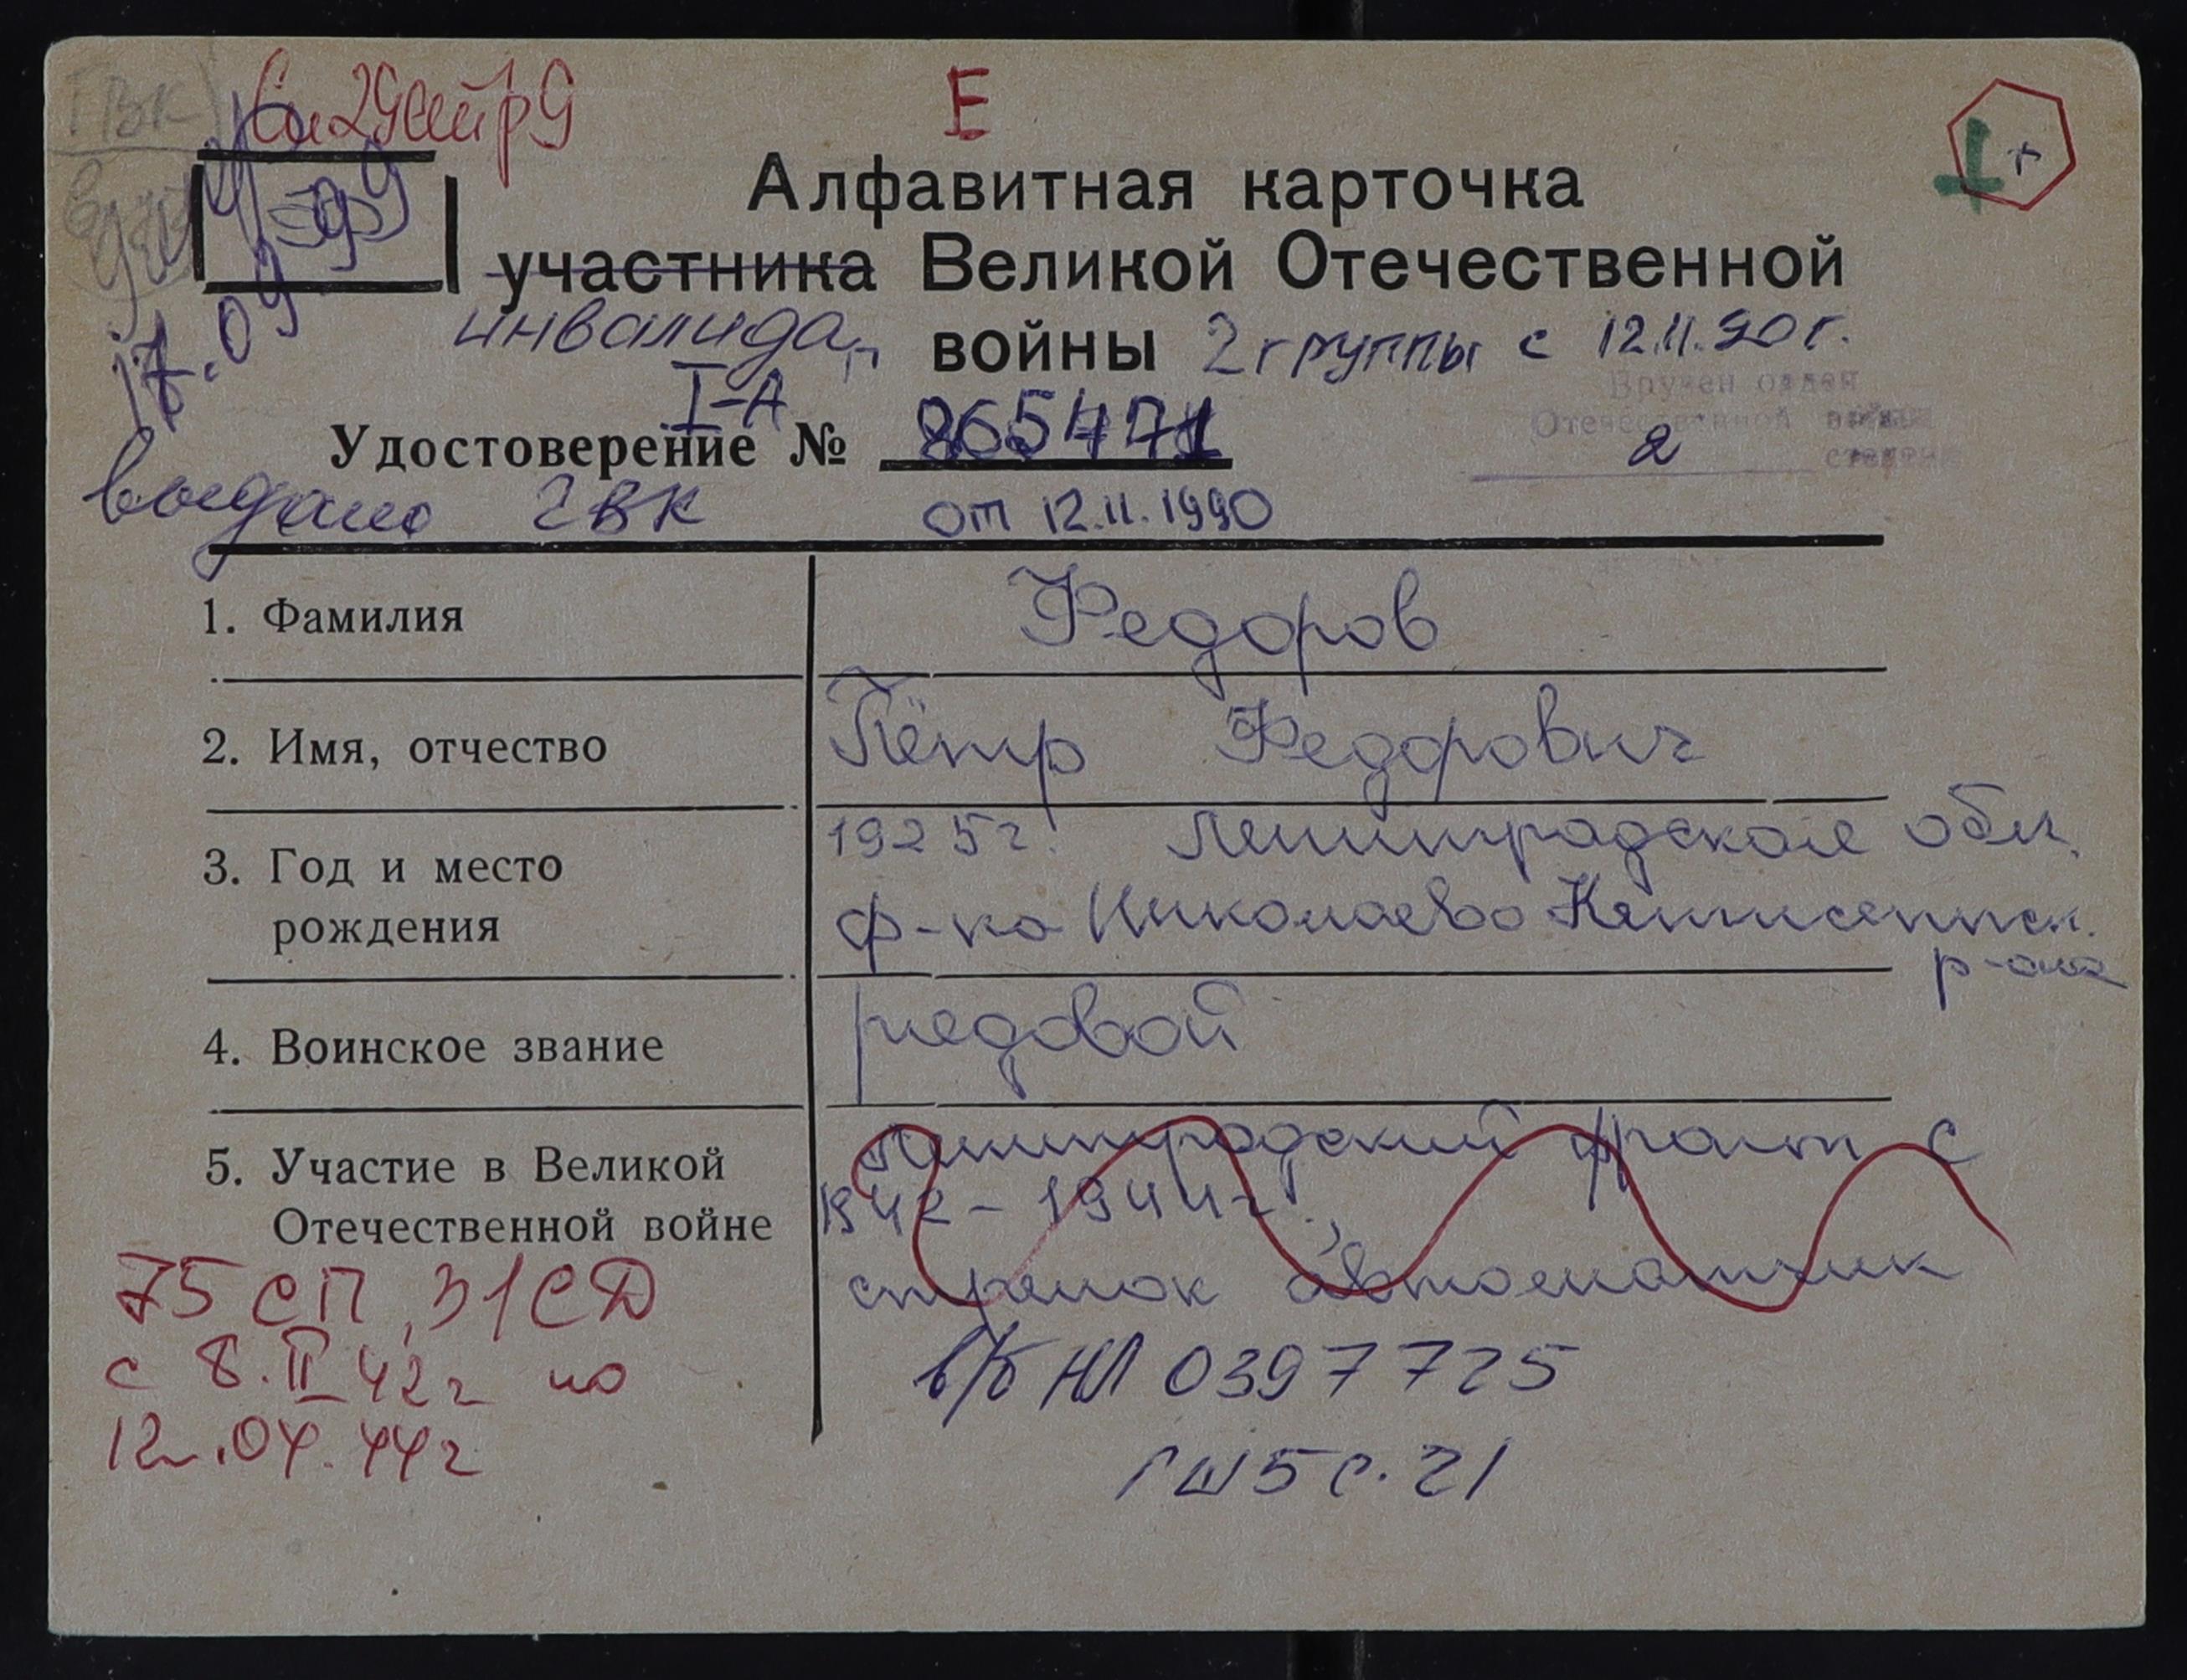 ГВК
Е
Алфавитная карточка
участника Великой Отечественной
инвалида войны 2 группы с 12.11.90 г.
Вручен орден
Отечественной войны
2 степени
17.09
I-А
Удостоверение № 865471
выдано ГВК от 12.11.1990
1. Фамилия Федоров
2. Имя, отчество Пётр Федорович
3. Год и место рождения 1925 г. Ленинградская обл.
ф-ка Николаево Кингисеппск.
р-она
4. Воинское звание рядовой
5. Участие в Великой Ленинградский фронт с
Отечественной войне 1942 – 1944 г.,
75 СП, 31 СД стрелок автоматчик
с 8.II 42 г по в/б НЛ 0397725
12.04.44 г